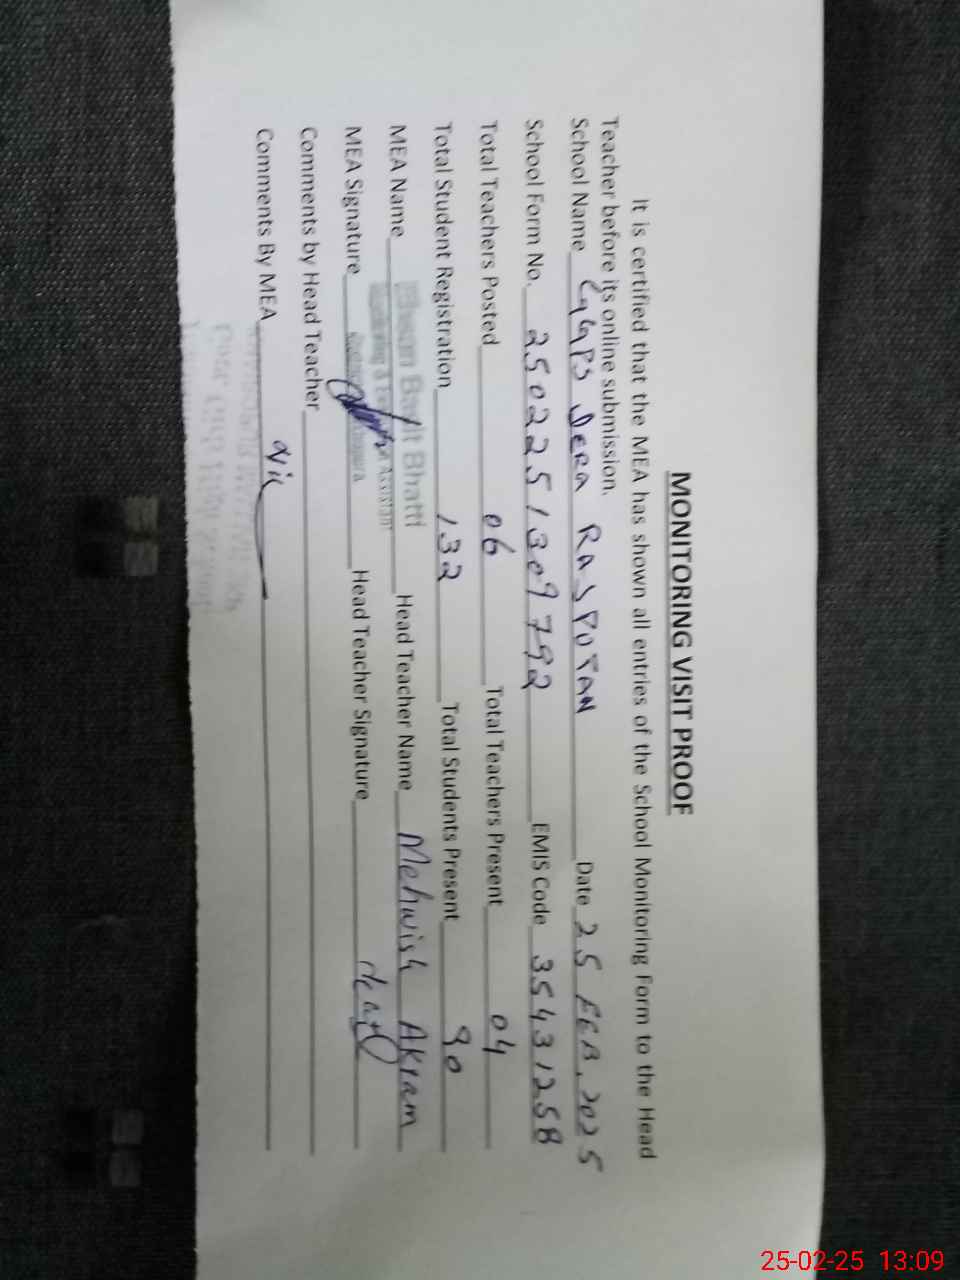 MONITORING VISIT PROOF
It is certified that the MEA has shown all entries of the School Monitoring Form to the Head
Teacher before its online submission.
School Name GGPS DERA RAJPUTAN Date 25 FEB, 2025
School Form No. 2502251309792 EMIS Code 35431258
Total Teachers Posted 06 Total Teachers Present 04
Total Student Registration 132 Total Students Present 90
MEA Name Bhatti Head Teacher Name Mehwish Akram
MEA Signature Head Teacher Signature
Comments by Head Teacher
Comments By MEA Nil
25-02-25 13:09